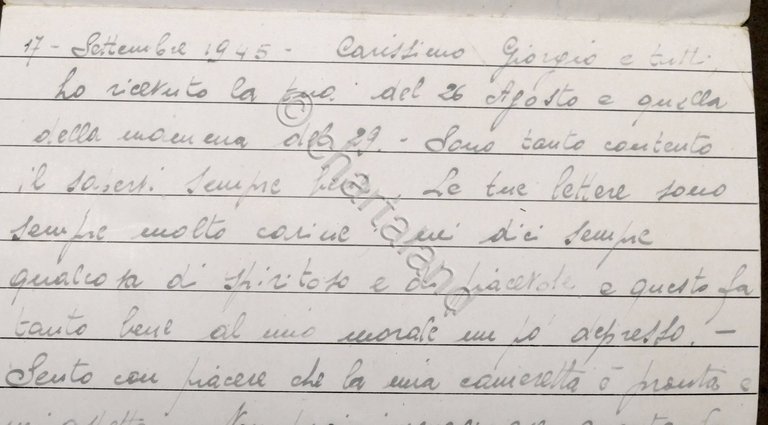 17 - Settembre 1945 - Carissimo Giorgio e tutti,
ho ricevuto la tua del 26 Agosto e quella
della mamma del 29. - Sono tanto contento
il sapervi sempre bene. Le tue lettere sono
sempre molto carine mi dici sempre
qualcosa di spiritoso e di piacevole e questo fa
tanto bene al mio morale un po' depresso. -
Sento con piacere che la mia cameretta è pronta e
mi aspetta.
© Chartaland